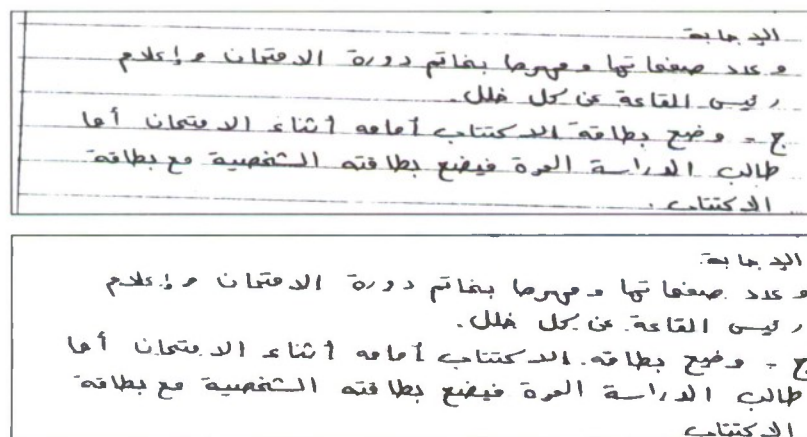 الإجابة
وعدد صفحاتها ومهرها بخاتم دورة الامتحان وإعلام
رئيس القاعة عن كل خلل.
ج - وضع بطاقة الاكتتاب أمامه أثناء الامتحان أما
طالب الدراسة الحرة فيضع بطاقته الشخصية مع بطاقة
الاكتتاب.
الإجابة
وعدد صفحاتها ومهرها بخاتم دورة الامتحان وإعلام
رئيس القاعة عن كل خلل.
ج - وضع بطاقة الاكتتاب أمامه أثناء الامتحان أما
طالب الدراسة الحرة فيضع بطاقته الشخصية مع بطاقة
الاكتتاب